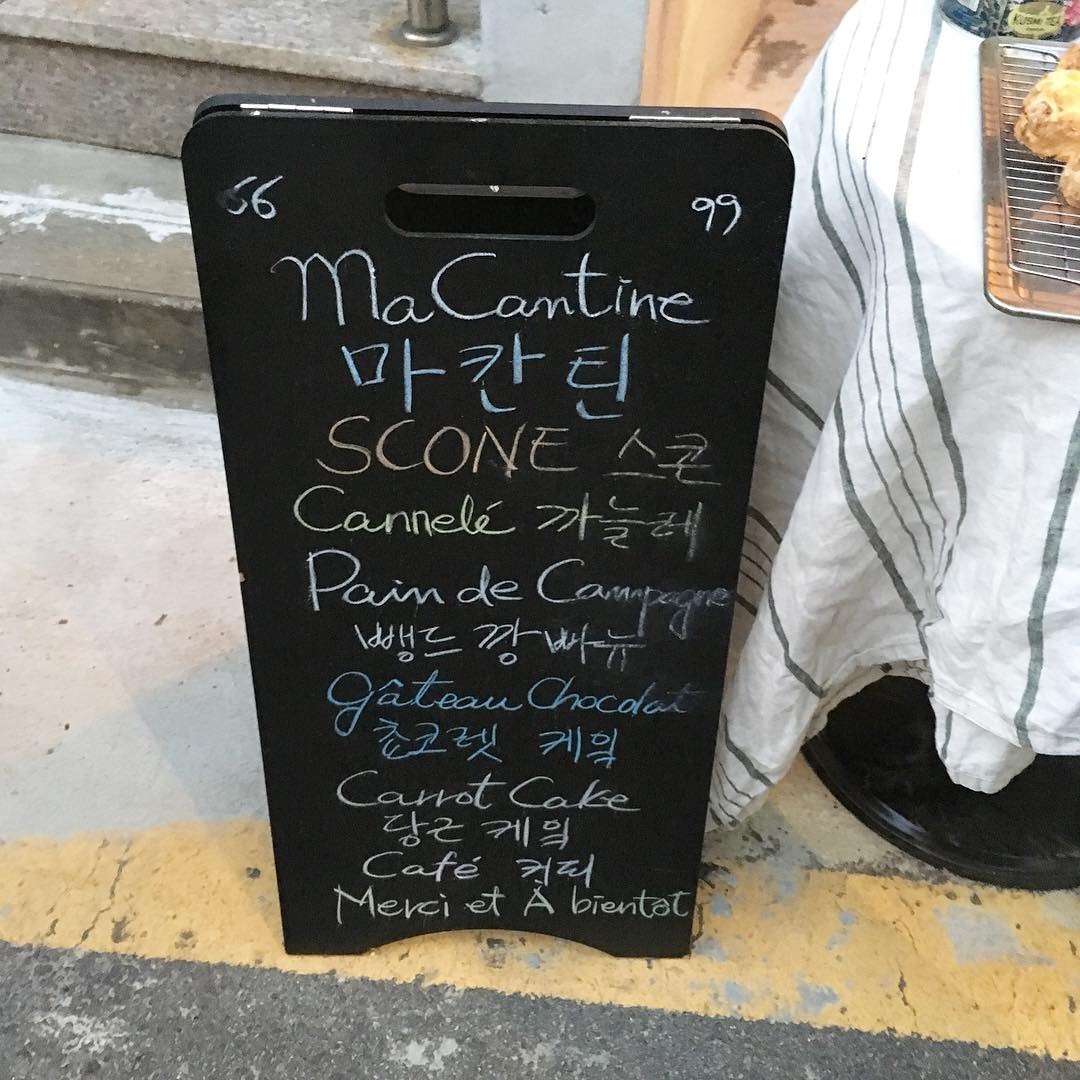 KUSMI TEA
66 99
Ma Cantine
마칸틴
SCONE 스콘
Cannelé 까눌레
Pain de Campagne
뺑드 깡빠뉴
Gâteau Chocolat
쵸코렛 케잌
Carrot Cake
당근 케잌
Café 커피
Merci et À bientôt